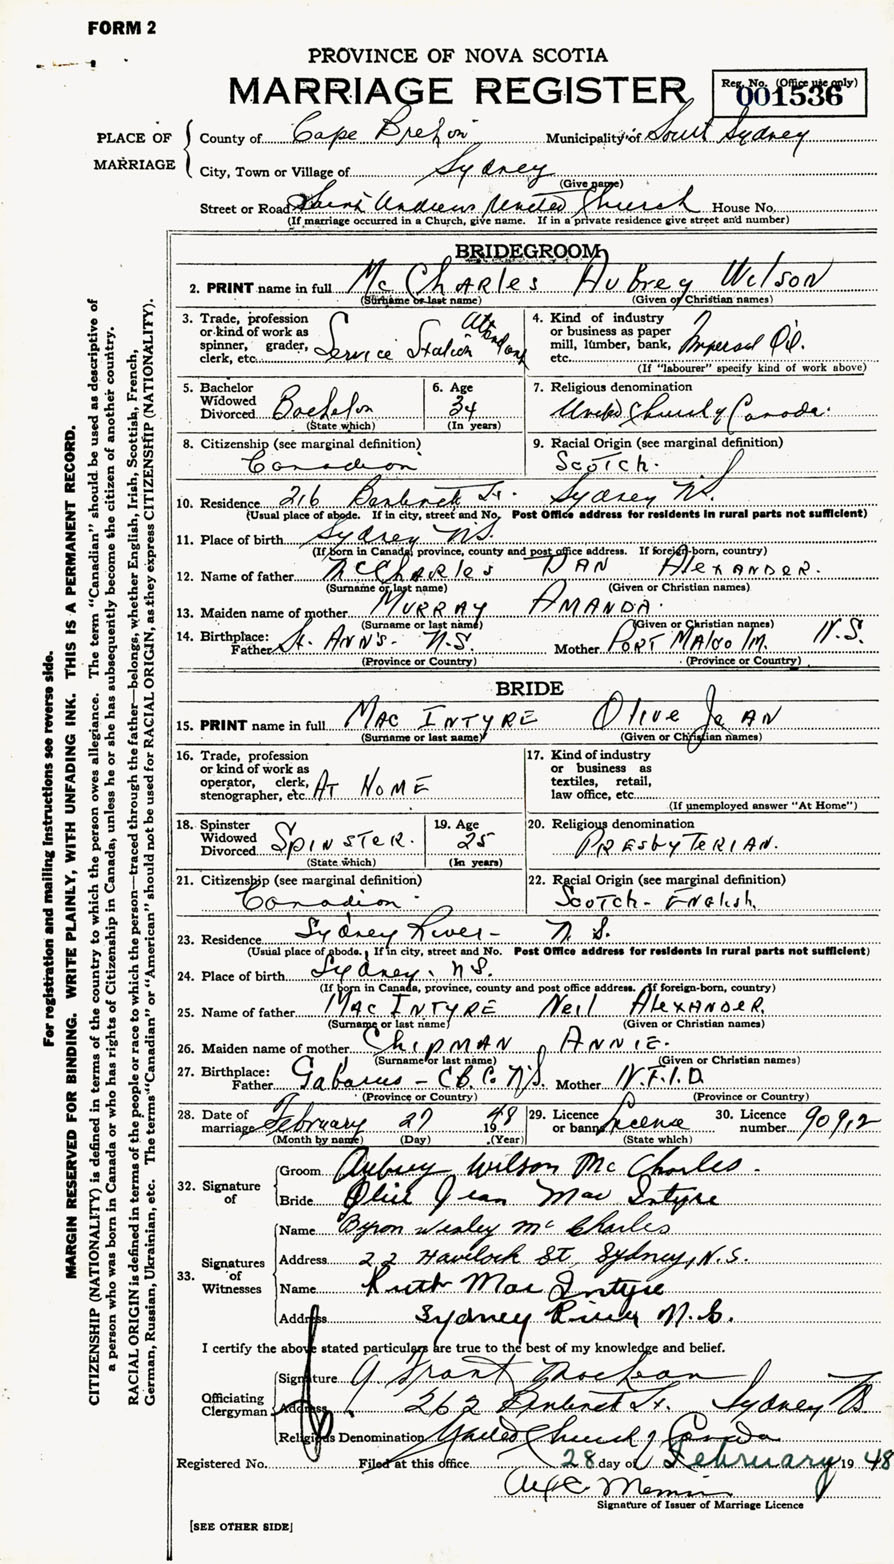 FORM 2
PROVINCE OF NOVA SCOTIA
MARRIAGE REGISTER
Reg. No. (Office use only)
001536
PLACE OF MARRIAGE
County of Cape Breton Municipality of South Sydney
City, Town or Village of Sydney
(Give name)
Street or Road Saint Andrews United Church House No.
(If marriage occurred in a Church, give name. If in a private residence give street and number)
BRIDEGROOM
2. PRINT name in full McCharles Aubrey Wilson
(Surname or last name) (Given or Christian names)
3. Trade, profession or kind of work as spinner, grader, clerk, etc. Service Station Attendant
4. Kind of industry or business as paper mill, lumber, bank, etc. Imperial Oil.
(If "labourer" specify kind of work above)
5. Bachelor Widowed Divorced Bachelor
(State which)
6. Age 34
(In years)
7. Religious denomination
United Church of Canada.
8. Citizenship (see marginal definition)
Canadian
9. Racial Origin (see marginal definition)
Scotch.
10. Residence 216 Bentinck St. Sydney N.S.
(Usual place of abode. If in city, street and No. Post Office address for residents in rural parts not sufficient)
11. Place of birth Sydney N.S.
(If born in Canada, province, county and post office address. If foreign-born, country)
12. Name of father McCharles Dan Alexander.
(Surname or last name) (Given or Christian names)
13. Maiden name of mother Murray Amanda.
(Surname or last name) (Given or Christian names)
14. Birthplace: Father St. Anns. N.S. Mother Port Malcolm. N.S.
(Province or Country) (Province or Country)
BRIDE
15. PRINT name in full MacIntyre Olive Jean
(Surname or last name) (Given or Christian names)
16. Trade, profession or kind of work as operator, clerk, stenographer, etc. At Home
17. Kind of industry or business as textiles, retail, law office, etc.
(If unemployed answer "At Home")
18. Spinster Widowed Divorced Spinster.
(State which)
19. Age 25
(In years)
20. Religious denomination
Presbyterian.
21. Citizenship (see marginal definition)
Canadian.
22. Racial Origin (see marginal definition)
Scotch - English.
23. Residence Sydney River - N.S.
(Usual place of abode. If in city, street and No. Post Office address for residents in rural parts not sufficient)
24. Place of birth Sydney. N.S.
(If born in Canada, province, county and post office address. If foreign-born, country)
25. Name of father MacIntyre Neil Alexander.
(Surname or last name) (Given or Christian names)
26. Maiden name of mother Chipman Annie.
(Surname or last name) (Given or Christian names)
27. Birthplace: Father Gabarus - C.B.C. N.S. Mother N.F.L.D.
(Province or Country) (Province or Country)
28. Date of marriage February 27 1948
(Month by name) (Day) (Year)
29. Licence or banns License
(State which)
30. Licence number 90912
32. Signature of
Groom Aubrey Wilson McCharles.
Bride Olive Jean MacIntyre
33. Signatures of Witnesses
Name Byron Wesley McCharles
Address 22 Havelock St, Sydney, N.S.
Name Ruth MacIntyre
Address Sydney River N.S.
I certify the above stated particulars are true to the best of my knowledge and belief.
Officiating Clergyman
Signature Grant MacLean
Address 262 Bentinck St. Sydney
Religious Denomination United Church of Canada
Registered No. Filed at this office 28 day of February 1948
Signature of Issuer of Marriage Licence
[SEE OTHER SIDE]
For registration and mailing instructions see reverse side.
MARGIN RESERVED FOR BINDING. WRITE PLAINLY, WITH UNFADING INK. THIS IS A PERMANENT RECORD.
CITIZENSHIP (NATIONALITY) is defined in terms of the country to which the person owes allegiance. The term "Canadian" should be used as descriptive of
a person who was born in Canada or who has rights of Citizenship in Canada, unless he or she has subsequently become the citizen of another country.
RACIAL ORIGIN is defined in terms of the people or race to which the person—traced through the father—belongs, whether English, Irish, Scottish, French,
German, Russian, Ukrainian, etc. The terms "Canadian" or "American" should not be used for RACIAL ORIGIN, as they express CITIZENSHIP (NATIONALITY).